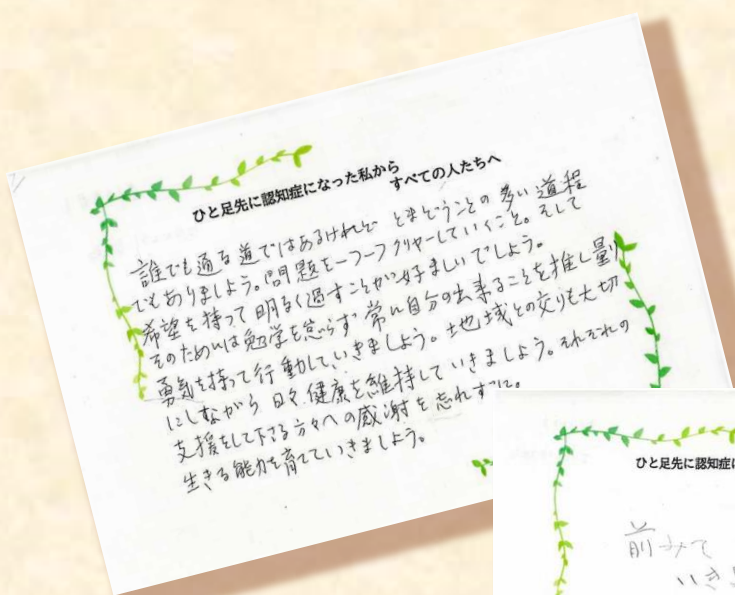 ひと足先に認知症になった私から
すべての人たちへ
誰でも通る道ではあるけれど とまどうことの多い道程
でもありましょう。問題を一つ一つクリヤーしていくこと。そして
希望を持って明るく過すことが好ましいでしょう。
そのためには勉学を怠らず 常に自分の出来ることを推し量り
勇気を持って行動していきましょう。地域との交りも大切
にしながら 日々健康を維持していきましょう。それぞれの
支援をして下さる方々への感謝を忘れずに。
生きる能力を育てていきましょう。
ひと足先に認知症に
前みて
いき